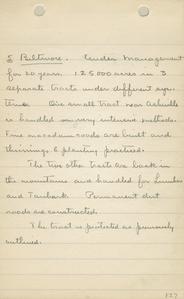 5 Biltmore. Under Management
for 20 years. 125000 acres in 3
separate tracts under different sys-
tems. One small tract near Asheville
is handled on very intensive methods.
Fine macadam roads are built and
thinning, & planting practised.
The two other tracts are back in
the mountains and handled for Lumber
and Tanbark. Permanent dirt
roads are constructed.
The tract is protected as previously
outlined.